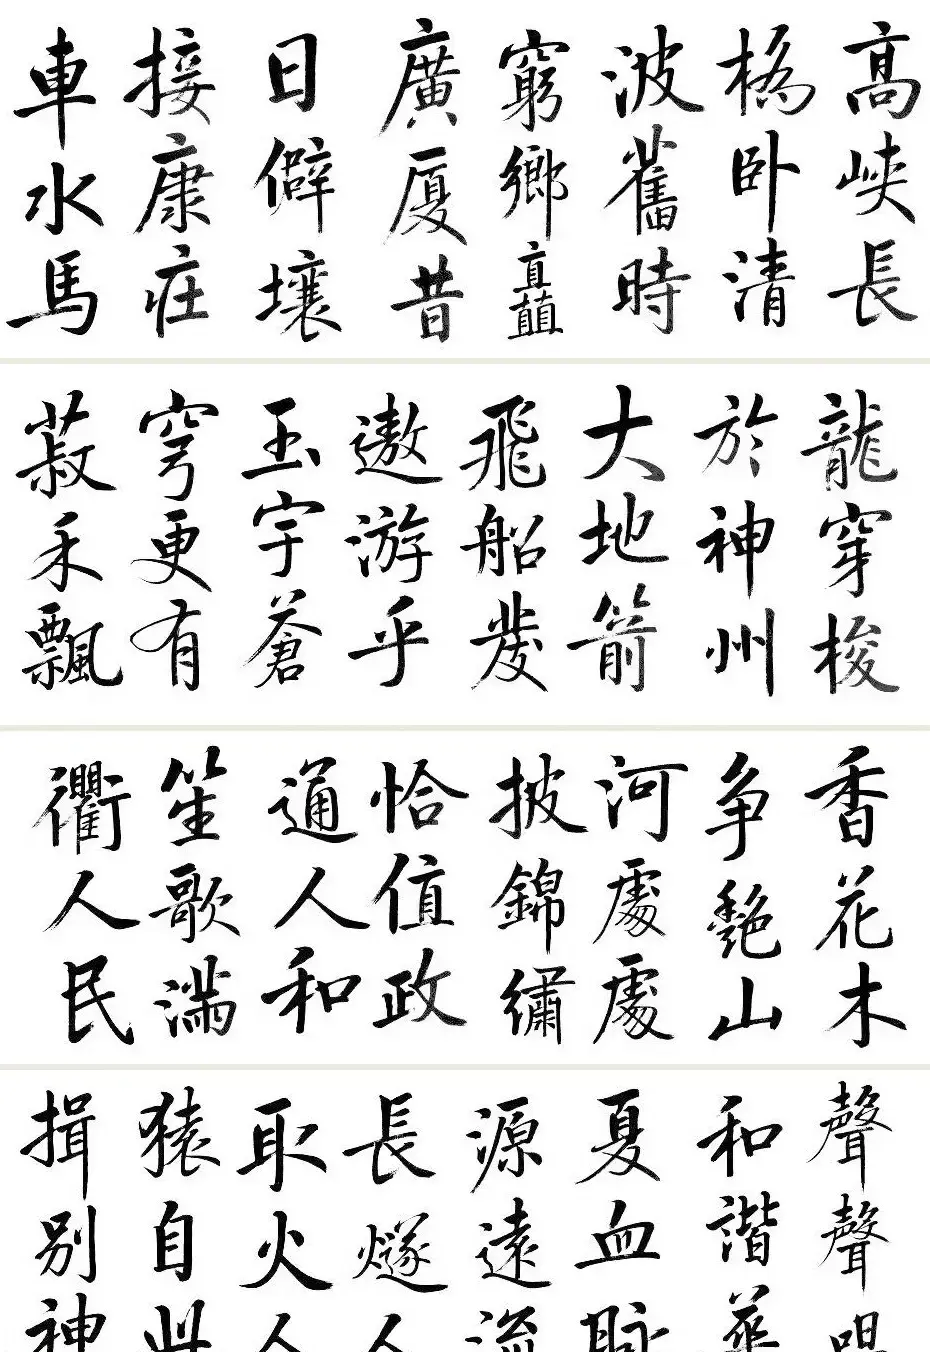 高峽長
橋卧清
波舊時
窮鄉矗
廣厦昔
日僻壤
接康庄
車水馬
龍穿梭
於神州
大地箭
飛船發
遨游乎
玉宇蒼
穹更有
菽禾飄
香花木
争艷山
河處處
披錦繡
恰值政
通人和
笙歌滿
衢人民
聲聲唱
和諧華
夏血脉
源遠流
長燧人
取火人
猿自此
揖别神